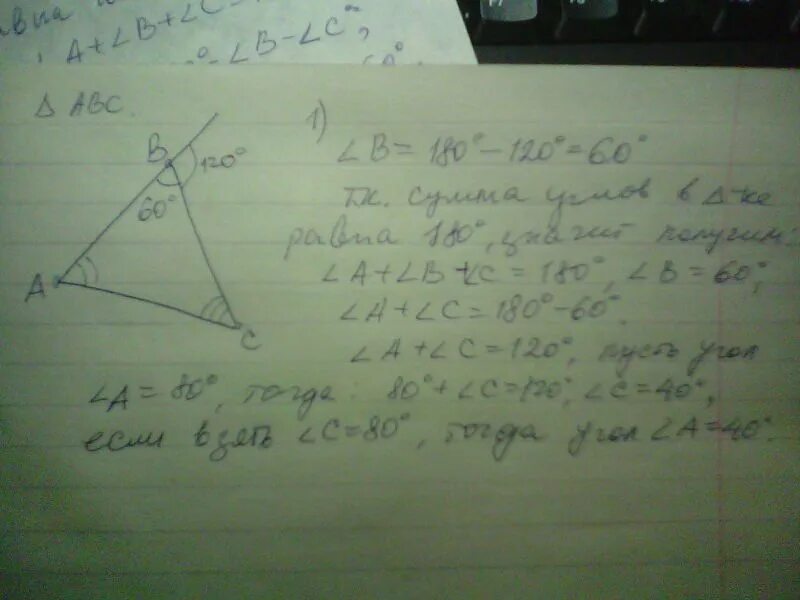 ∠A+∠B+∠C
∠B-∠C
△ ABC.
B
120°
60°
A
C
1)
∠B = 180° - 120° = 60°
т.к. сумма углов в △-ке
равна 180°, значит получим:
∠A + ∠B + ∠C = 180°, ∠B = 60°,
∠A + ∠C = 180° - 60°.
∠A + ∠C = 120°, пусть угол
∠A = 80°, тогда: 80° + ∠C = 120°, ∠C = 40°,
если взять ∠C = 80°, тогда угол ∠A = 40°.